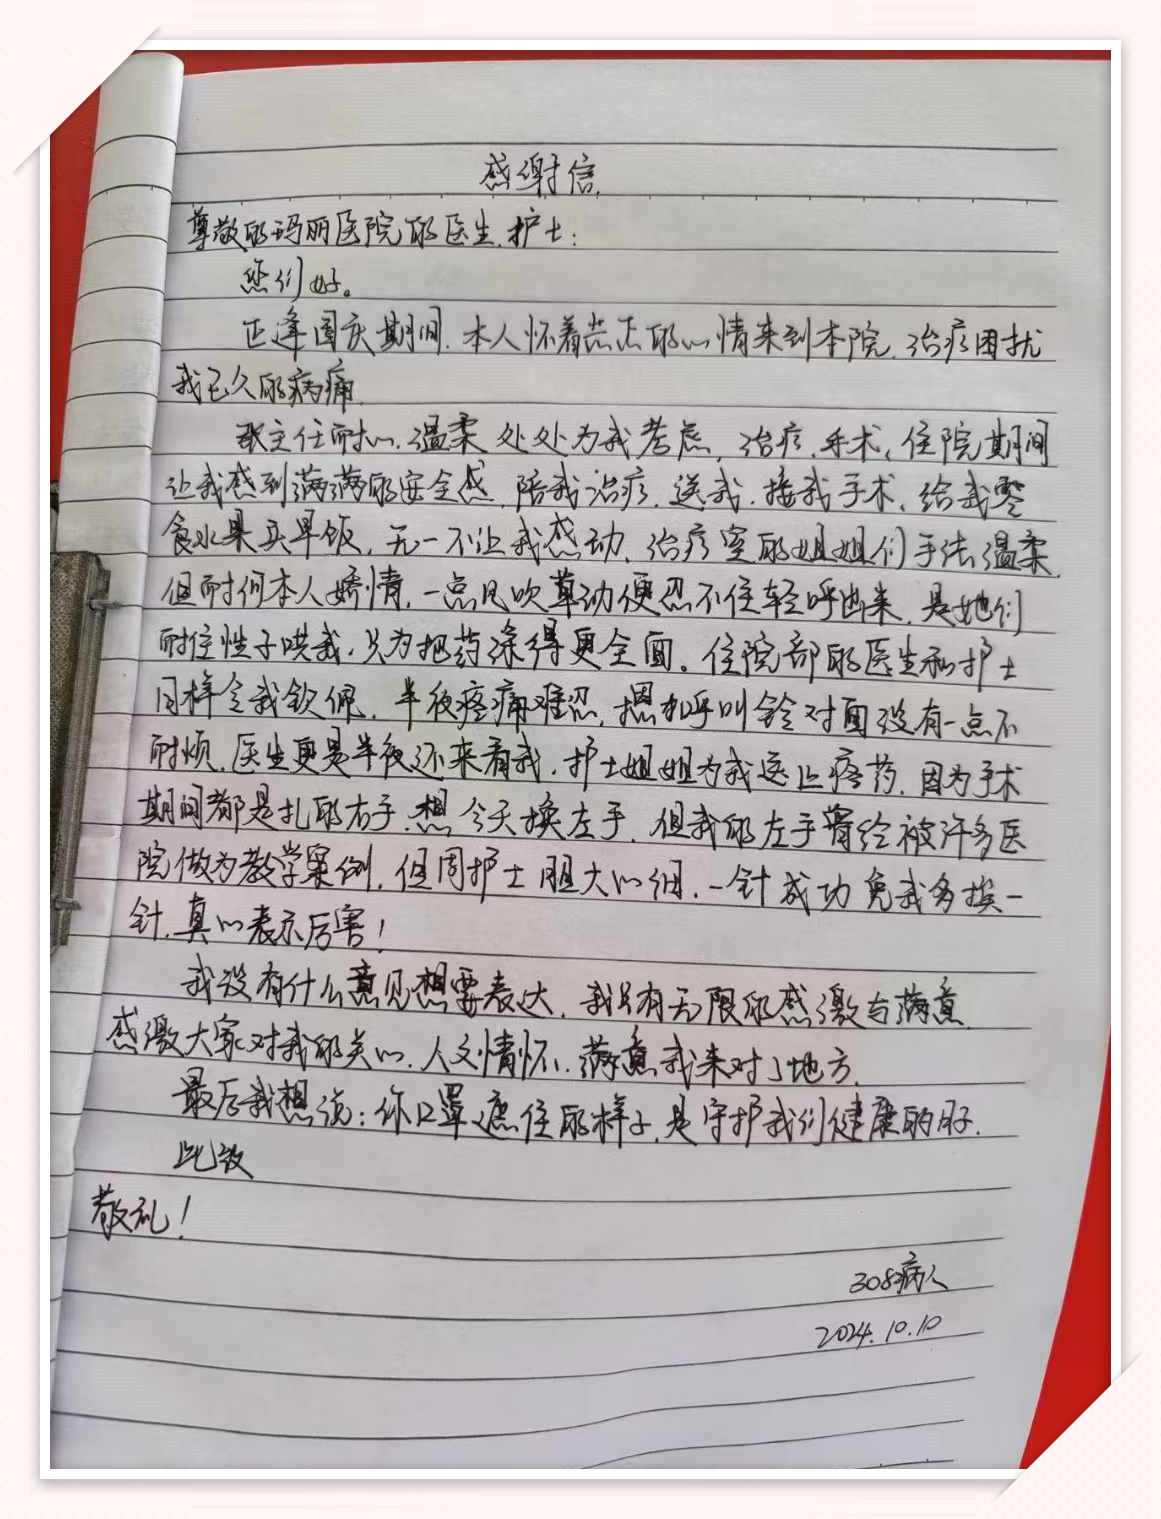 感谢信
尊敬的玛丽医院的医生、护士:
您们好。
正逢国庆期间,本人怀着忐忑的心情来到本院,治疗困扰
我已久的病痛.
主任耐心、温柔处处为我考虑,治疗、手术、住院期间
让我感到满满的安全感,陪我治疗,送我、接我手术,给我零
食水果买早饭,无一不让我感动,治疗室的姐姐们手法温柔,
但耐何本人娇情,一点风吹草动便忍不住轻呼出来,是她们
耐住性子哄我,只为把药涂得更全面。住院部的医生和护士
同样令我钦佩,半夜疼痛难忍,摁扣呼叫铃对面没有一点不
耐烦,医生更是半夜还来看我,护士姐姐为我送止疼药,因为手术
期间都是扎的右手,想今天换左手,但我的左手曾经被许多医
院做为教学案例,但周护士胆大心细,一针成功免我多挨一
针,真心表示厉害!
我没有什么意见想要表达,我只有无限的感激与满意,
感激大家对我的关心、人文情怀,满意我来对了地方.
最后我想说:你口罩遮住的样子,是守护我们健康的样子.
此致
敬礼!
308病人
2024.10.10